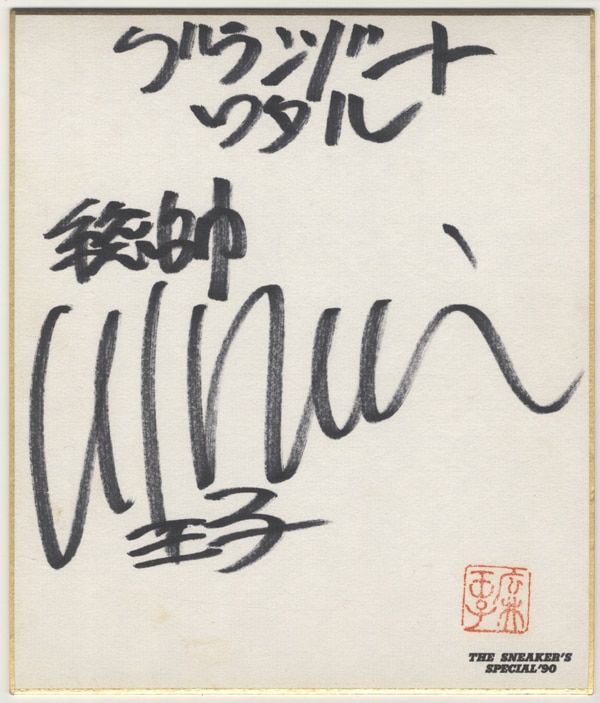 グランゾート
ワタル
総帥
王子
広井
王子
THE SNEAKER'S
SPECIAL '90